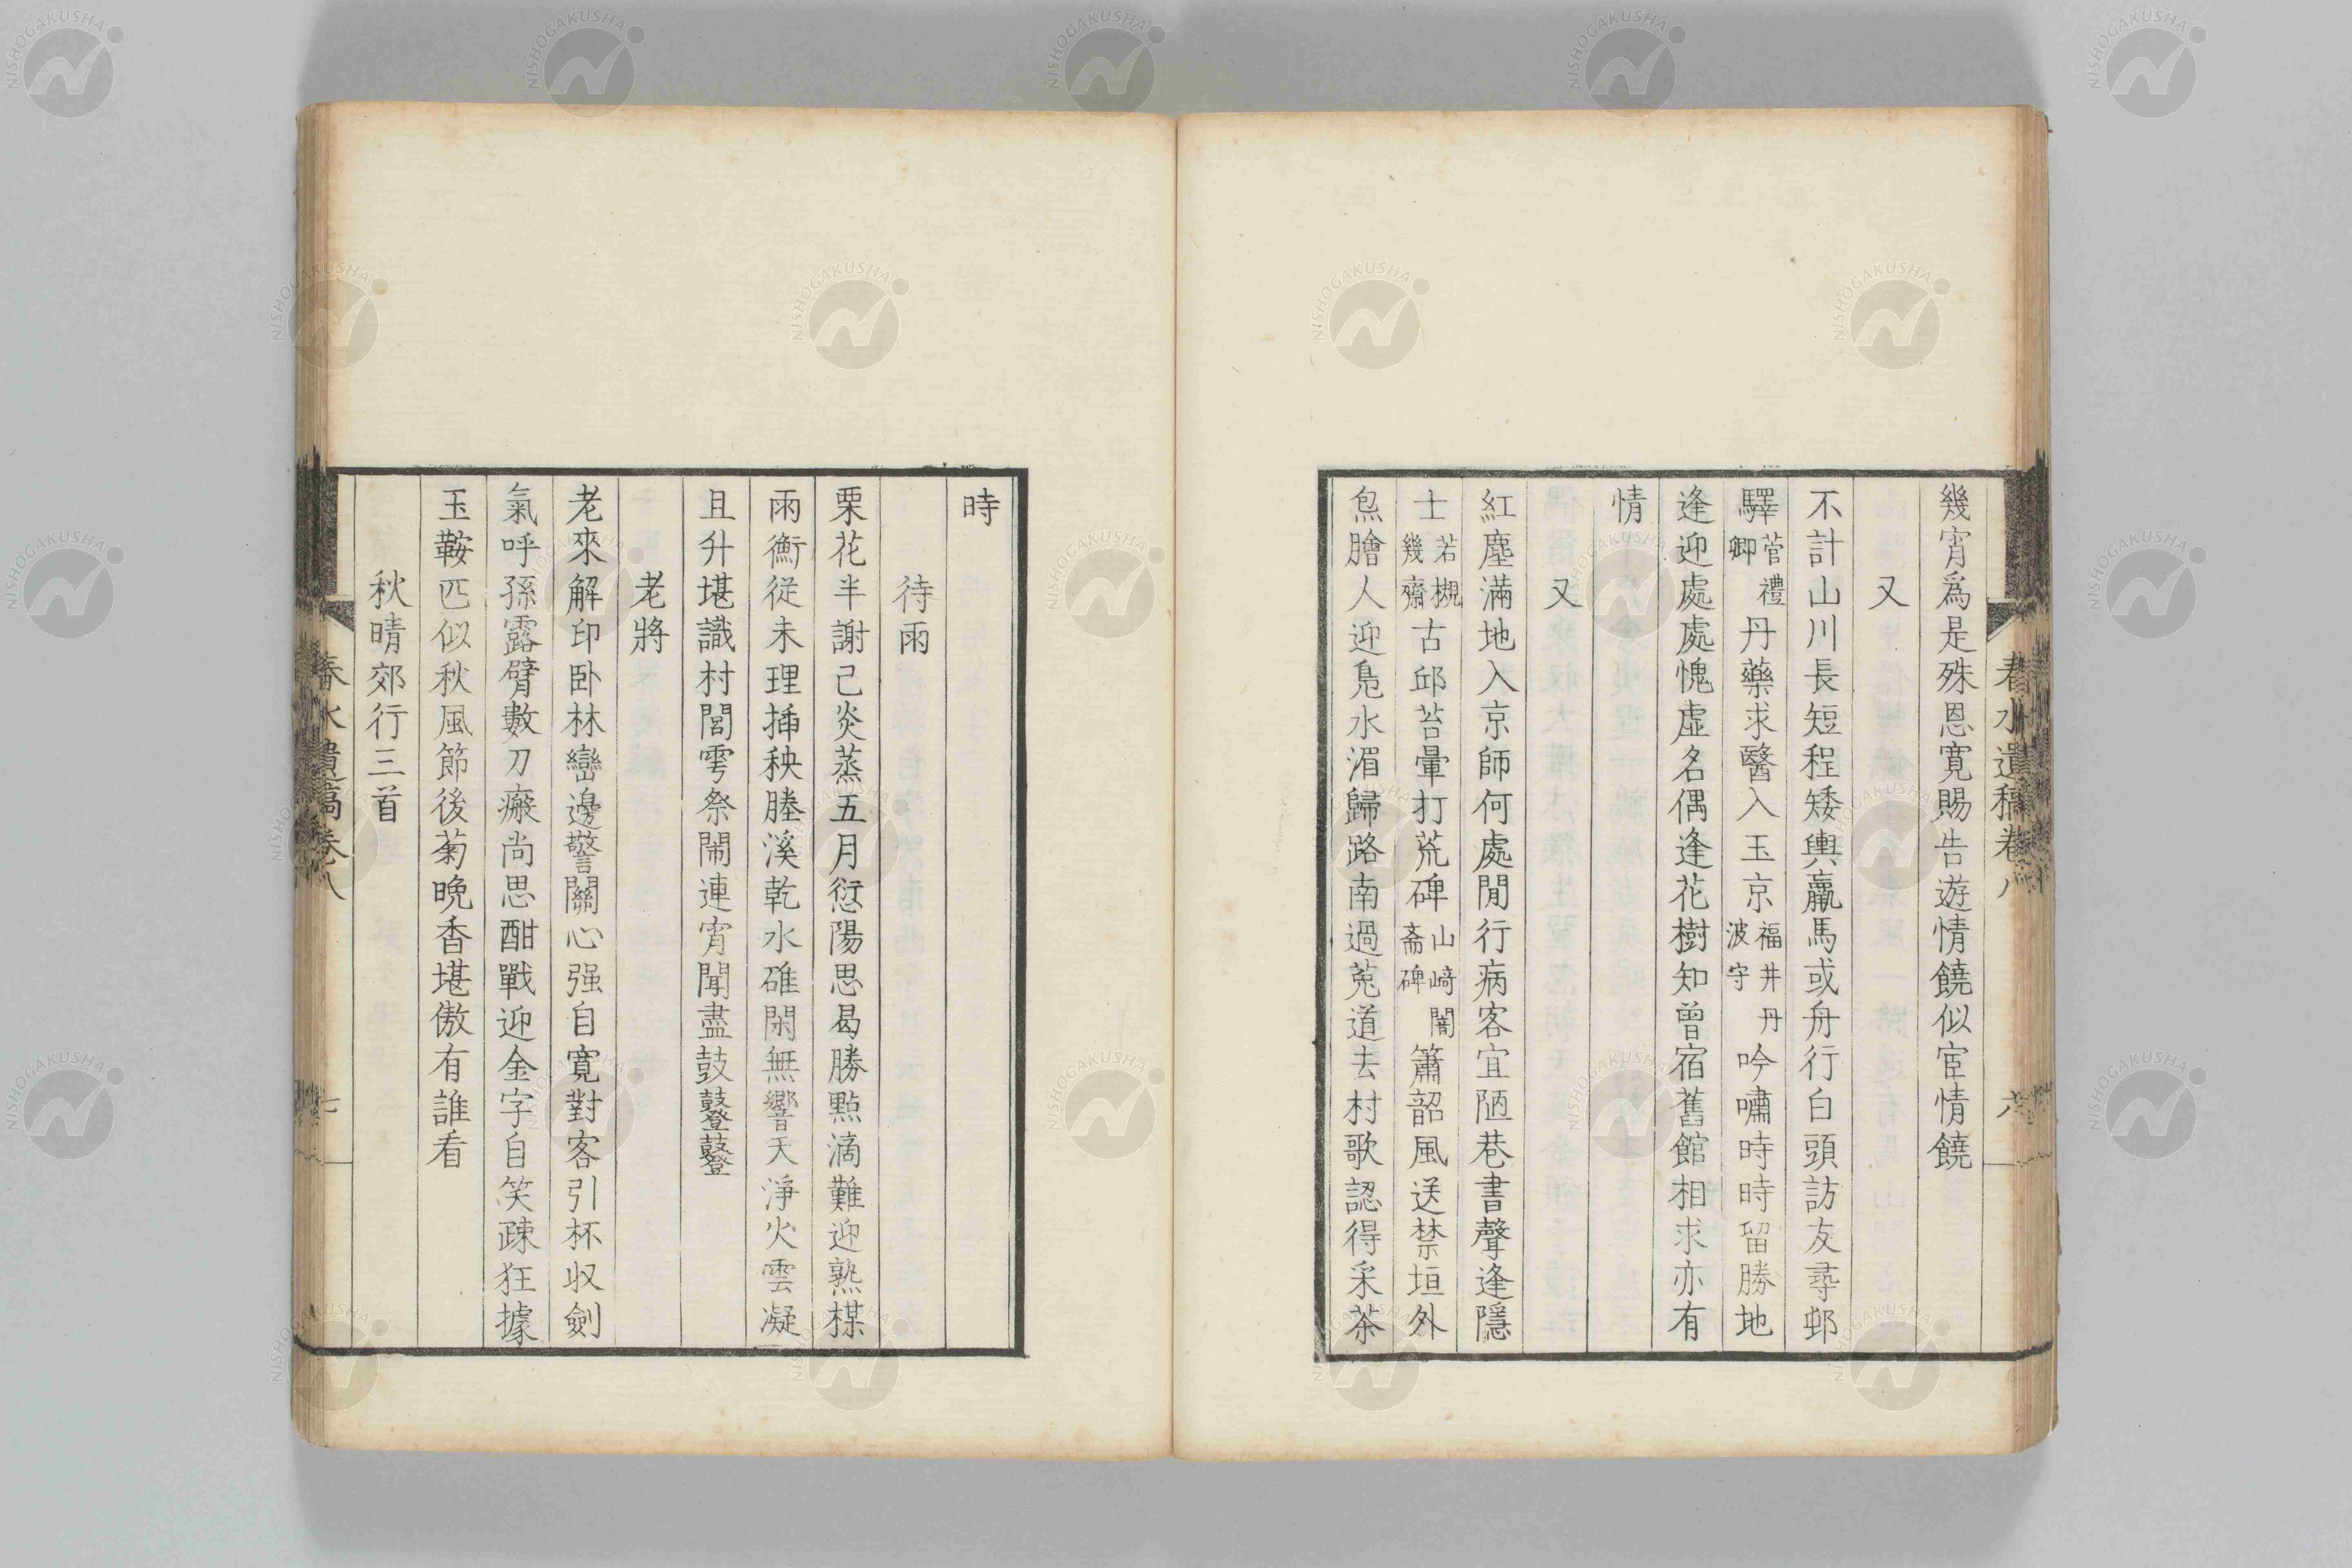 幾宵爲是殊恩寛賜告遊情饒似宦情饒
又
不計山川長短程矮輿羸馬或舟行白頭訪友尋邨
驛菅禮卿丹藥求醫入玉京福井丹波守吟嘯時時留勝地
逢迎處處愧虛名偶逢花樹知曾宿舊館相求亦有
情
又
紅塵滿地入京師何處閒行病客宜陋巷書聲逢隱
士若槻幾齋古邱苔暈打荒碑山崎闇斎碑簫韶風送禁垣外
炰膾人迎鳧水湄歸路南過菟道去村歌認得采茶
春水遺稿卷八
六
時
待雨
栗花半謝已炎蒸五月愆陽思曷勝點滴難迎熟楳
雨衡從未理揷秧塍溪乾水碓閑無響天淨火雲凝
且升堪識村閭雩祭閙連宵聞盡鼓鼟鼟
老將
老來解印卧林巒邊警關心强自寬對客引杯収劍
氣呼孫露臂數刀瘢尚思酣戰迎金字自笑疎狂據
玉鞍匹似秋風節後菊晩香堪傲有誰看
秋晴郊行三首
春水遺稿卷八
七
NISHOGAKUSHA